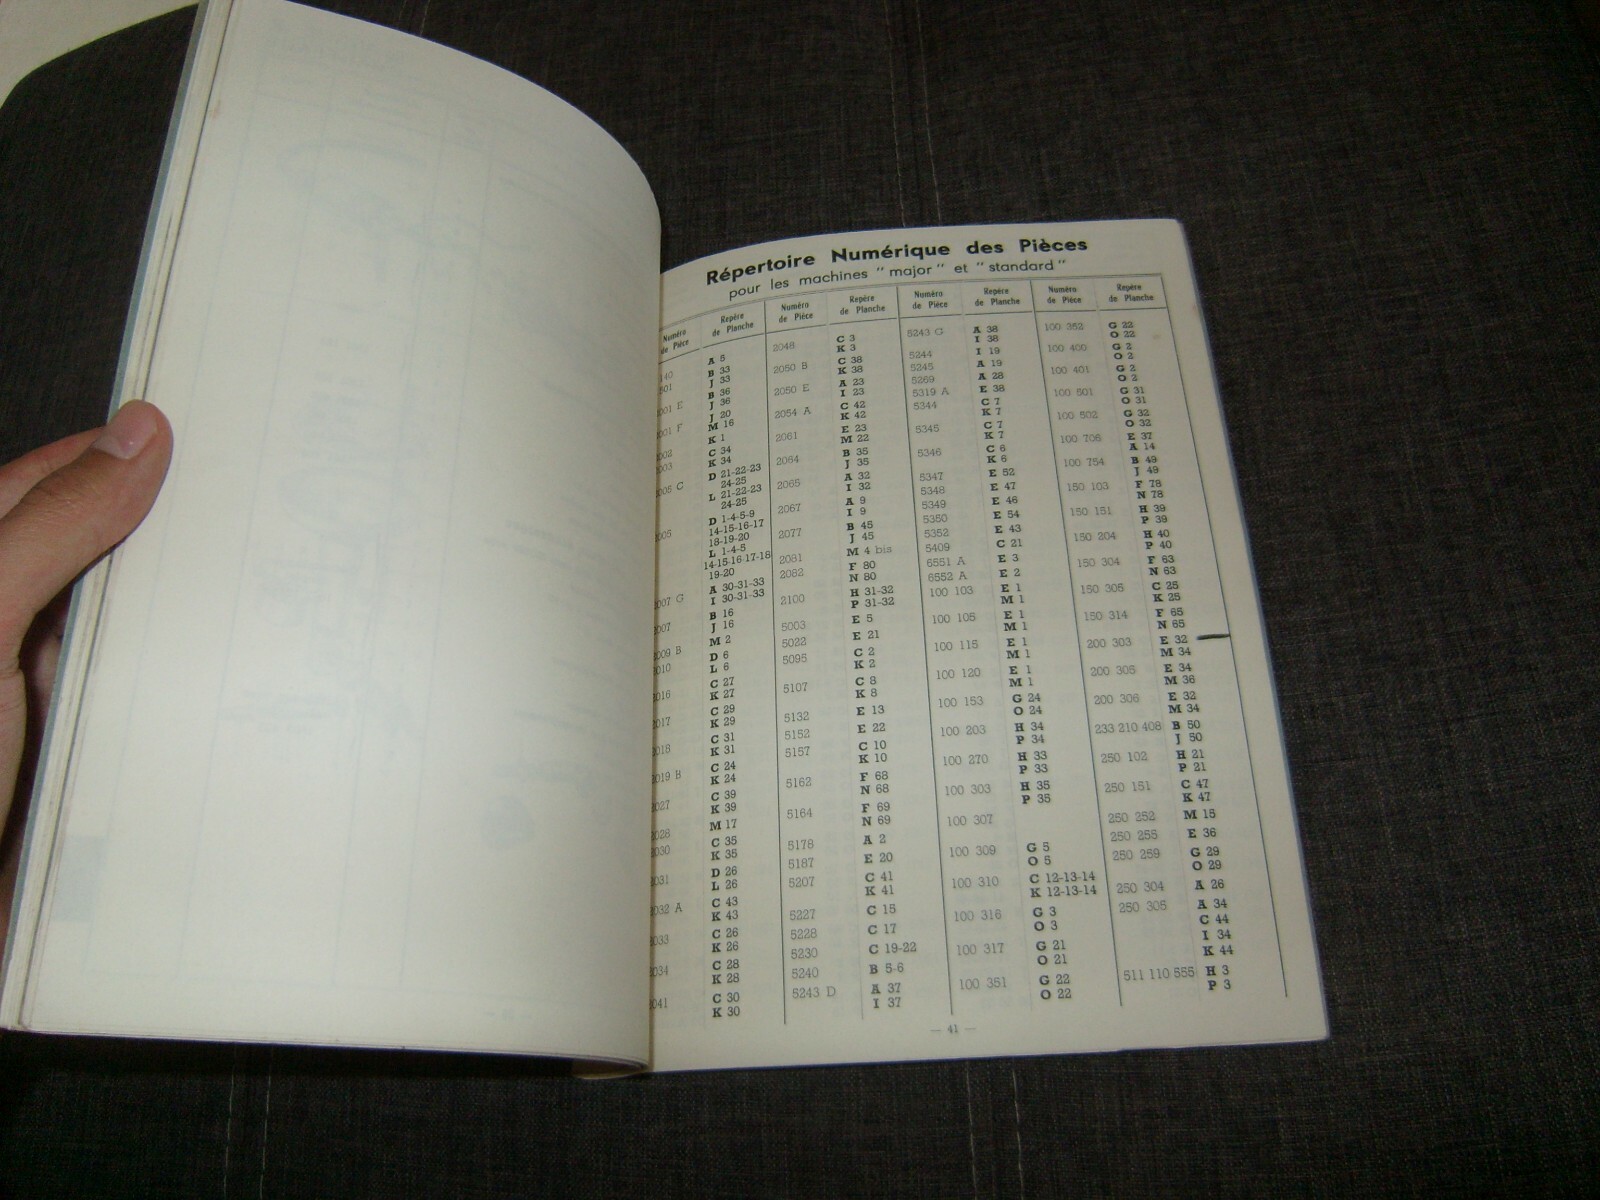 Répertoire Numérique des Pièces
pour les machines " major " et " standard "
Numéro de Pièce
Repère de Planche
Numéro de Pièce
Repère de Planche
Numéro de Pièce
Repère de Planche
Numéro de Pièce
Repère de Planche
140 A 5
501 B 33
J 33
001 E B 36
J 36
001 F J 20
M 16
002 K 1
003 C 34
K 34
005 C D 21-22-23
24-25
L 21-22-23
24-25
005 D 1-4-5-9
14-15-16-17
18-19-20
L 1-4-5
14-15-16-17-18
19-20
2007 G A 30-31-33
I 30-31-33
2007 B 16
J 16
2009 B M 2
2010 D 6
L 6
2016 C 27
K 27
2017 C 29
K 29
2018 C 31
K 31
2019 B C 24
K 24
2027 C 39
K 39
2028 M 17
2030 C 35
K 35
2031 D 26
L 26
2032 A C 43
K 43
2033 C 26
K 26
2034 C 28
K 28
2041 C 30
K 30
2048 C 3
K 3
2050 B C 38
K 38
2050 E A 23
I 23
2054 A C 42
K 42
2061 E 23
M 22
2064 B 35
J 35
2065 A 32
I 32
2067 A 9
I 9
2077 B 45
J 45
2081 M 4 bis
2082 F 80
N 80
2100 H 31-32
P 31-32
5003 E 5
5022 E 21
5095 C 2
K 2
5107 C 8
K 8
5132 E 13
5152 E 22
5157 C 10
K 10
5162 F 68
N 68
5164 F 69
N 69
5178 A 2
5187 E 20
5207 C 41
K 41
5227 C 15
5228 C 17
5230 C 19-22
5240 B 5-6
5243 D A 37
I 37
5243 G A 38
I 38
5244 I 19
5245 A 19
5269 A 28
5319 A E 38
5344 C 7
K 7
5345 C 7
K 7
5346 C 6
K 6
5347 E 52
5348 E 47
5349 E 46
5350 E 54
5352 E 43
5409 C 21
6551 A E 3
6552 A E 2
100 103 E 1
M 1
100 105 E 1
M 1
100 115 E 1
M 1
100 120 E 1
M 1
100 153 G 24
O 24
100 203 H 34
P 34
100 270 H 33
P 33
100 303 H 35
P 35
100 307
100 309 G 5
O 5
100 310 C 12-13-14
K 12-13-14
100 316 G 3
O 3
100 317 G 21
O 21
100 351 G 22
O 22
100 352 G 22
O 22
100 400 G 2
O 2
100 401 G 2
O 2
100 501 G 31
O 31
100 502 G 32
O 32
100 706 E 37
A 14
100 754 B 49
J 49
150 103 F 78
N 78
150 151 H 39
P 39
150 204 H 40
P 40
150 304 F 63
N 63
150 305 C 25
K 25
150 314 F 65
N 65
200 303 E 32
M 34
200 305 E 34
M 36
200 306 E 32
M 34
233 210 408 B 50
J 50
250 102 H 21
P 21
250 151 C 47
K 47
250 252 M 15
250 255 E 36
250 259 G 29
O 29
250 304 A 26
250 305 A 34
C 44
I 34
K 44
511 110 555 H 3
P 3
— 41 —